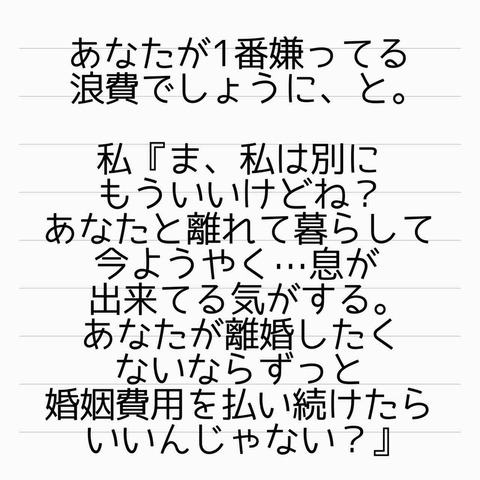 あなたが1番嫌ってる
浪費でしょうに、と。
私『ま、私は別に
もういいけどね？
あなたと離れて暮らして
今ようやく…息が
出来てる気がする。
あなたが離婚したく
ないならずっと
婚姻費用を払い続けたら
いいんじゃない？』